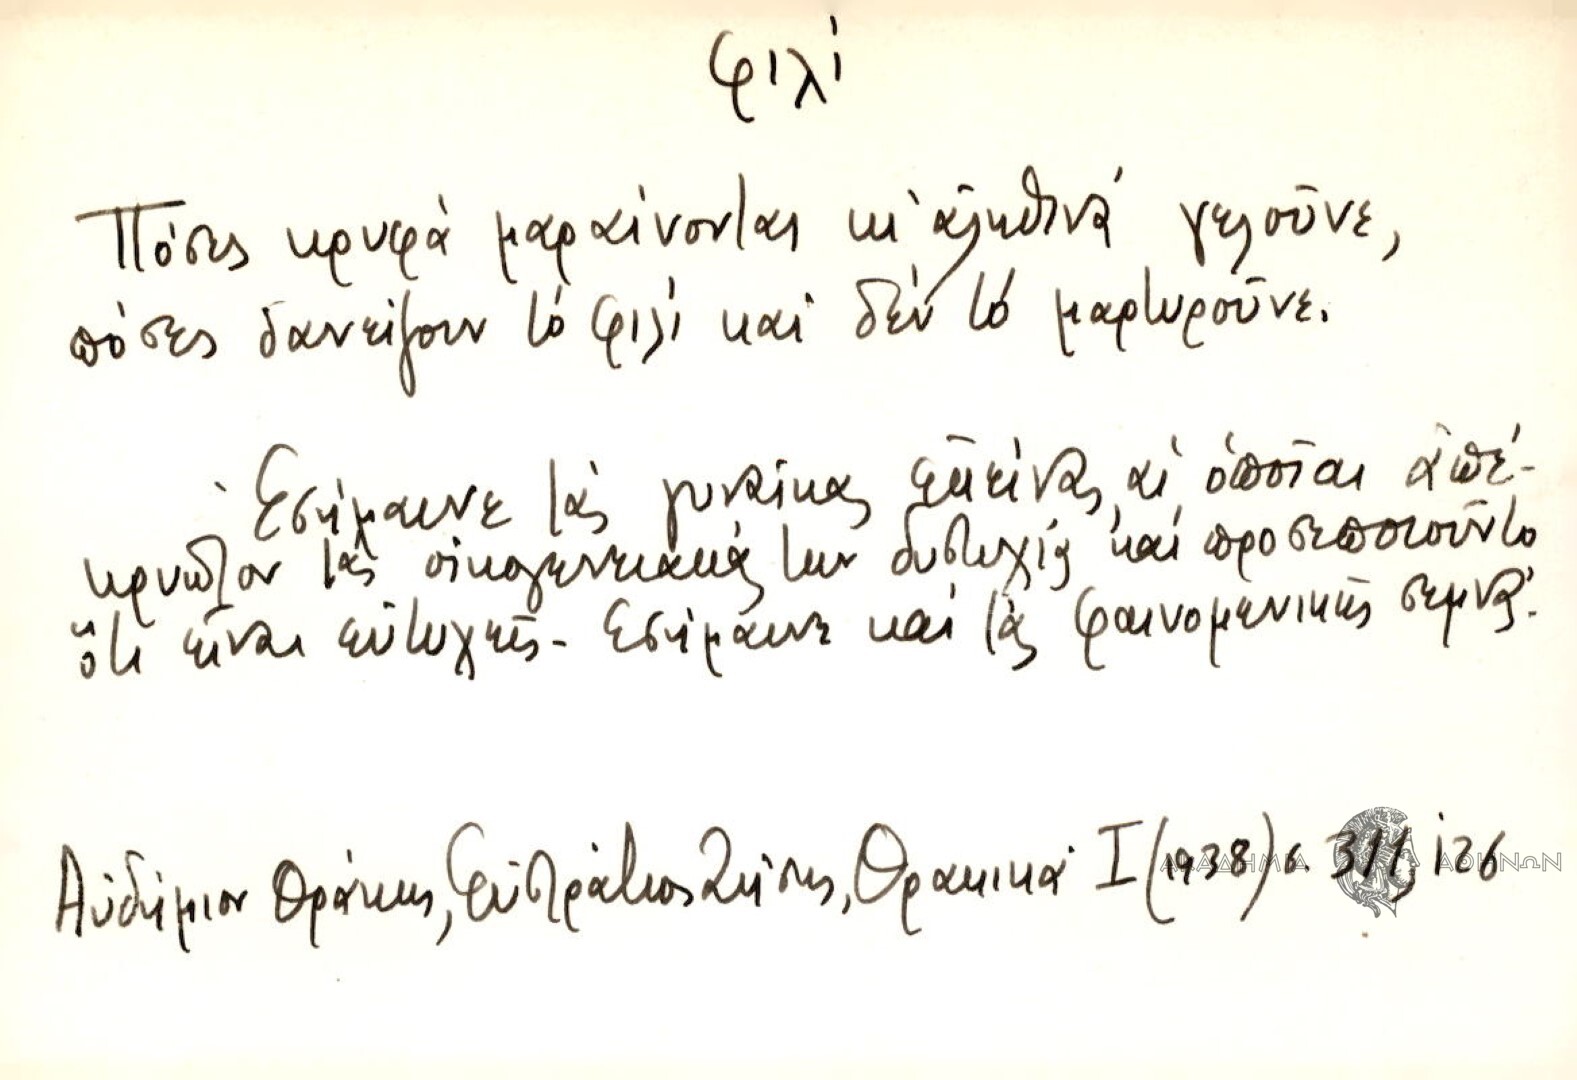 φιλί
Πόσες κρυφά μαραίνονται κι' ἀληθινά γελοῦνε,
πόσες δανείζουν τό φιλί καί δέν τό μαρτυροῦνε.
Ἐσήμαινε τάς γυναῖκας ἐκείνας αἱ ὁποῖαι ἀπέ-
κρυπτον τάς οἰκογενειακάς των δυστυχίας καί προσεποιοῦντο
ὅτι εἶναι εὐτυχεῖς- Ἐσήμαινε καί τάς φαινομενικῶς σεμνάς.
Αὐδήμιον Θράκης, Εὐστράτιος Ζήσης, Θρακικά I (1938) σ. 311, 126
ΑΚΑΔΗΜΙΑ ΑΘΗΝΩΝ